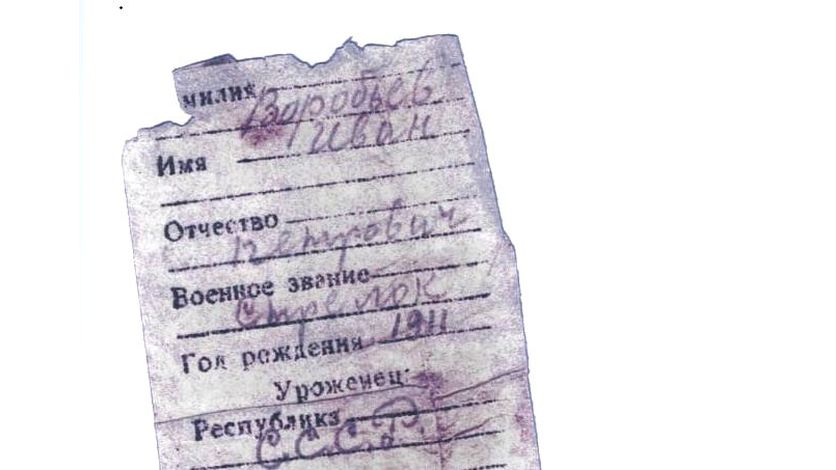 милия
Воробьев
Иван
Имя
Отчество
Петрович
Военное звание
Стрелок
Год рождения 1911
Уроженец:
Республика
С.С.С.Р.